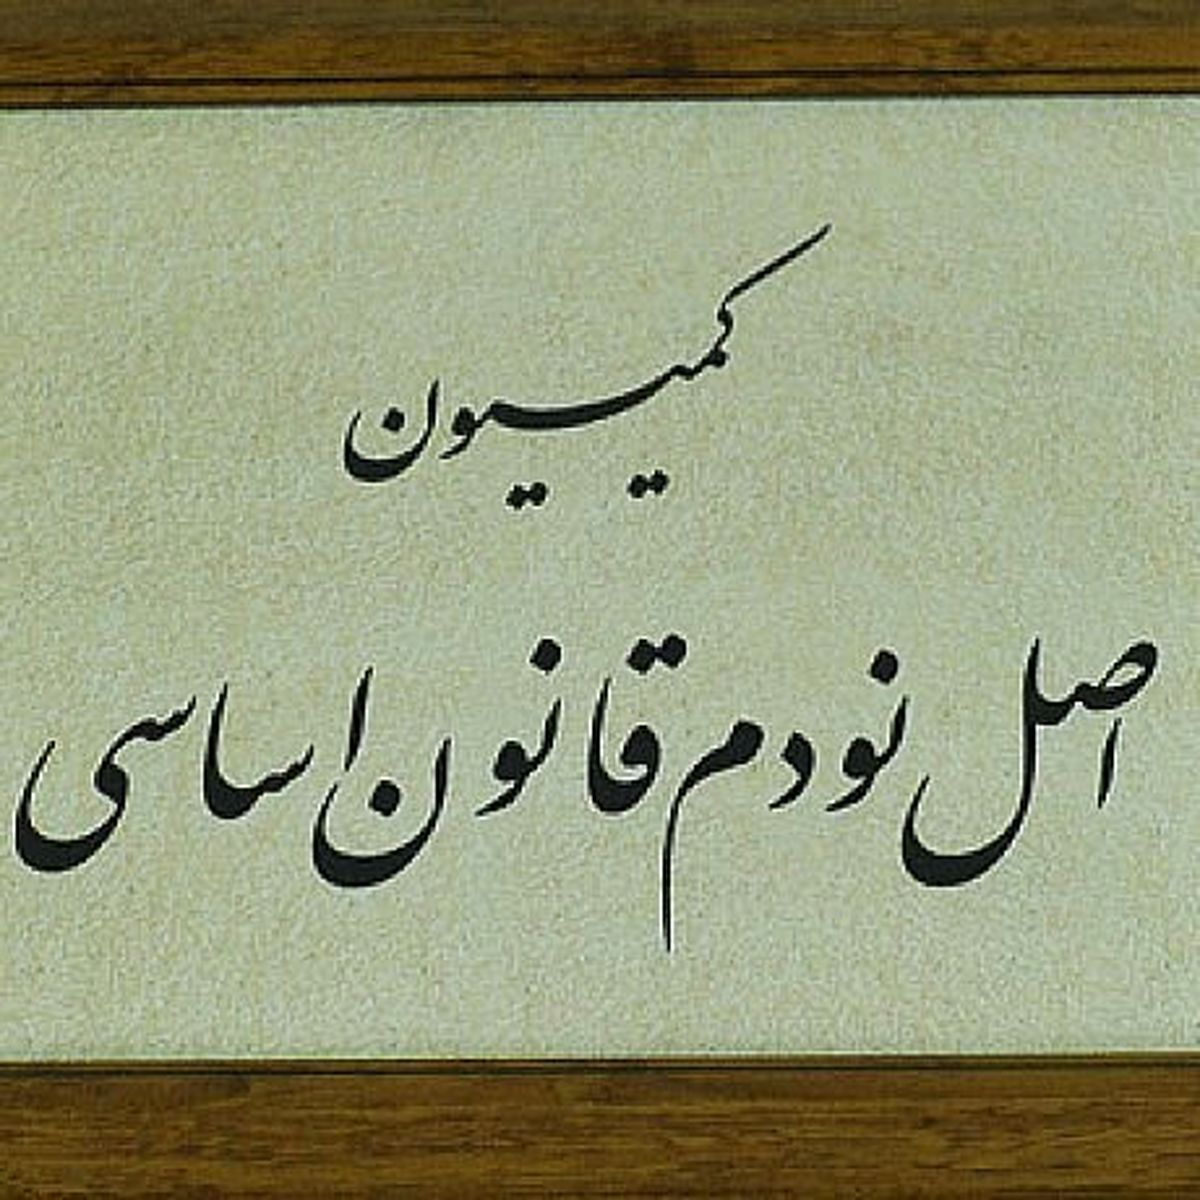 کمیسیون
اصل نودم قانون اساسی